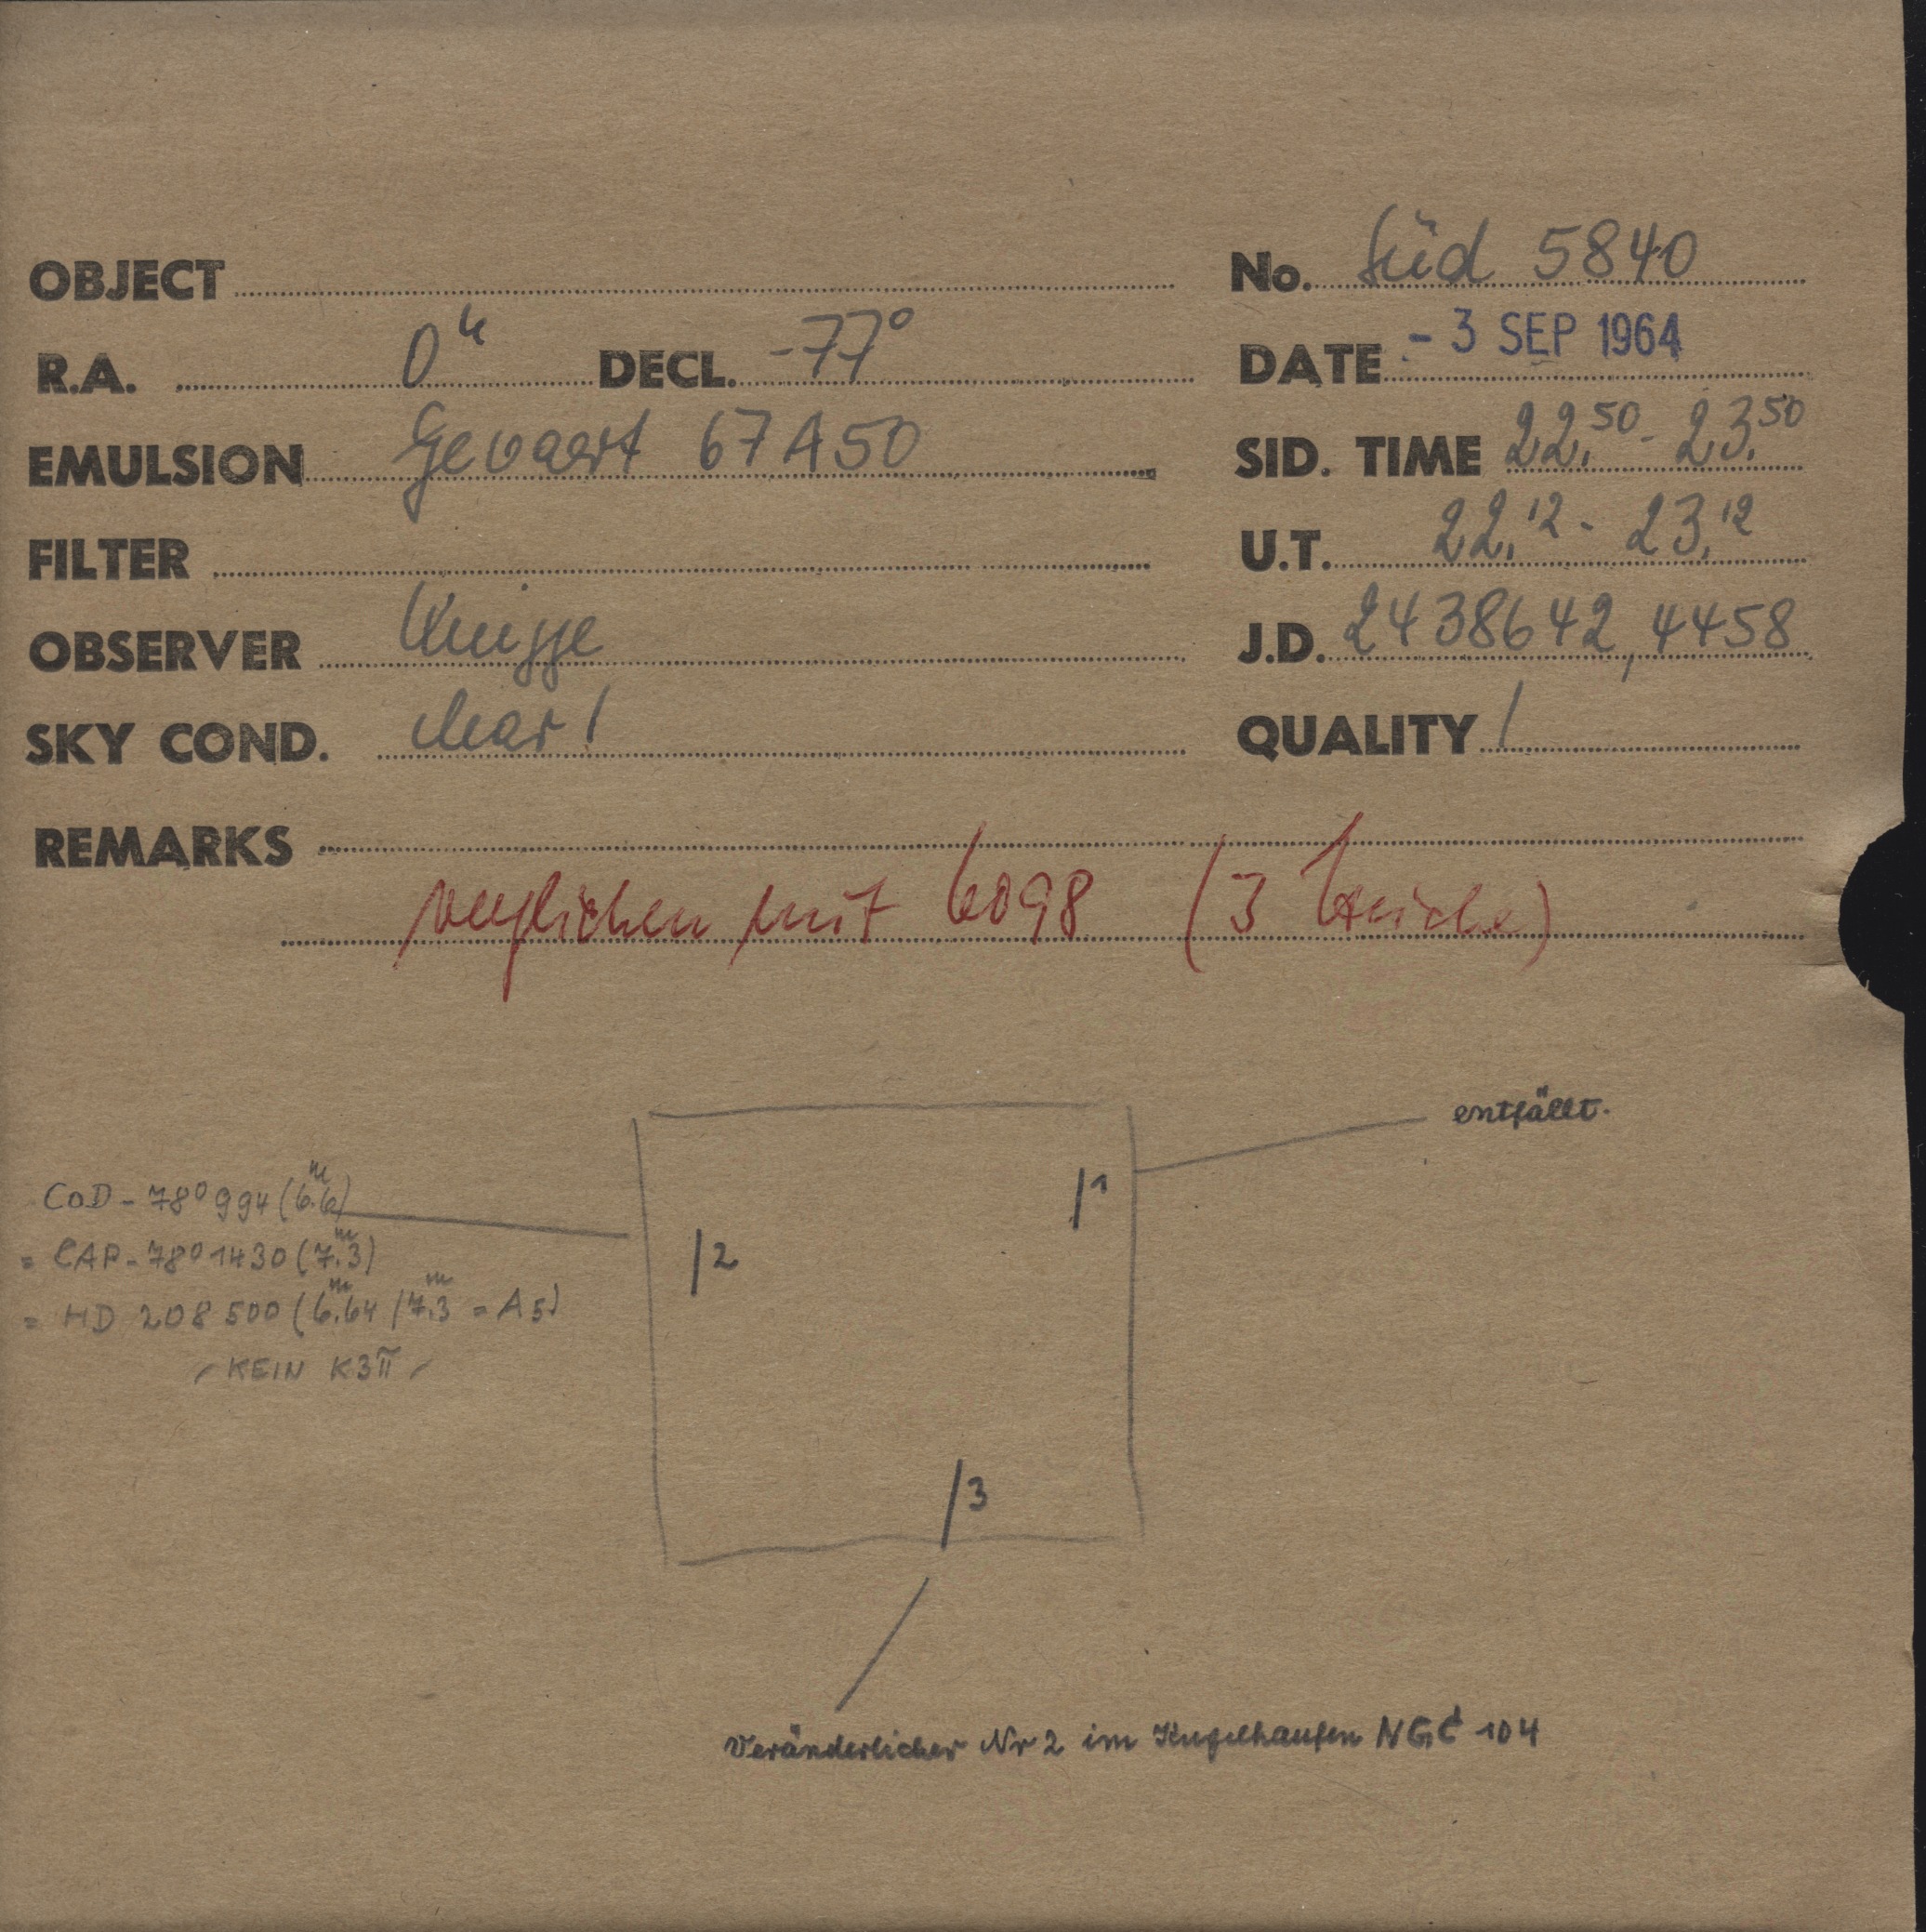 OBJECT
No. Süd 5840
R.A. 0h DECL. -77°
DATE - 3 SEP 1964
EMULSION Gevaert 67A50
SID. TIME 22,50 - 23,50
FILTER
U.T. 22,12 - 23,12
OBSERVER Knigge
J.D. 2438642,4458
SKY COND. clear!
QUALITY 1
REMARKS
verglichen mit 6098 (3 Striche)
entfällt.
CoD - 78° 994 (6.m6)
= CAP - 78° 1430 (7.m3)
= HD 208 500 (6.m64 / 7.m3 = A5)
- KEIN K3II -
1
2
3
Veränderlicher Nr 2 im Kugelhaufen NGC 104